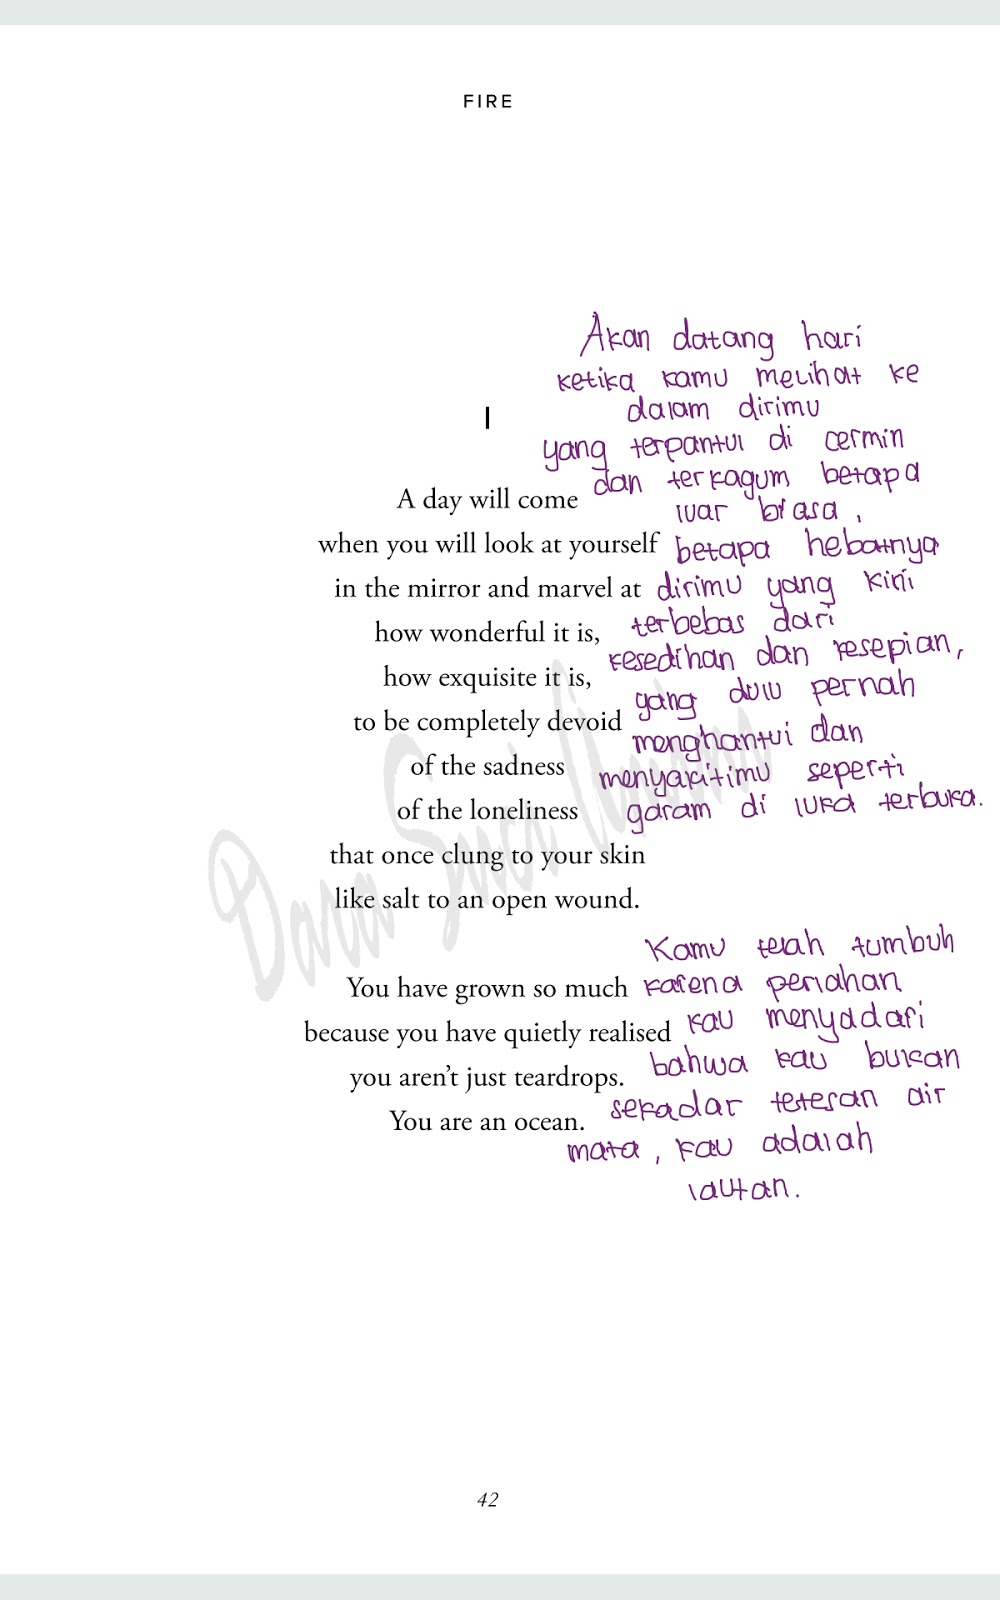 FIRE
I
A day will come
when you will look at yourself
in the mirror and marvel at
how wonderful it is,
how exquisite it is,
to be completely devoid
of the sadness
of the loneliness
that once clung to your skin
like salt to an open wound.
You have grown so much
because you have quietly realised
you aren't just teardrops.
You are an ocean.
Akan datang hari
ketika kamu melihat ke
dalam dirimu
yang terpantul di cermin
dan terkagum betapa
luar biasa,
betapa hebatnya
dirimu yang kini
terbebas dari
kesedihan dan kesepian,
yang dulu pernah
menghantui dan
menyakitimu seperti
garam di luka terbuka.
Kamu telah tumbuh
karena perlahan
kau menyadari
bahwa kau bukan
sekadar tetesan air
mata, kau adalah
lautan.
Dara Suci
42